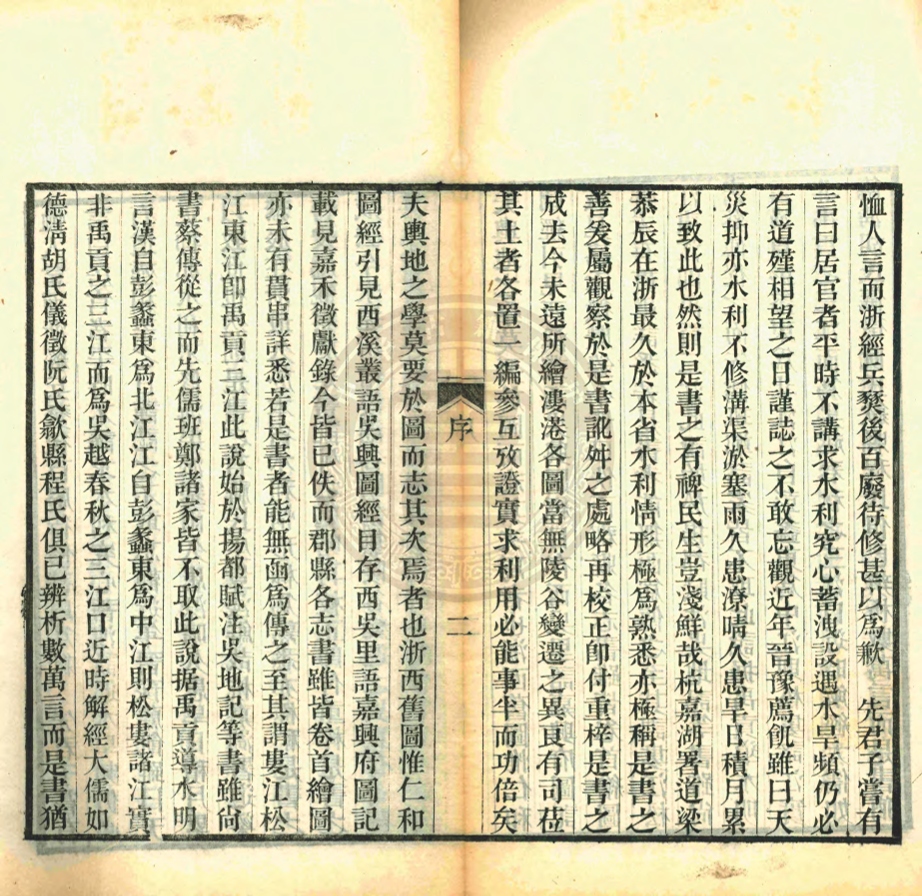 恤人言而浙經兵燹後百廢待修甚以爲歉　先君子嘗有
言曰居官者平時不講求水利究心蓄洩設遇水旱頻仍必
有道殣相望之日謹誌之不敢忘觀近年晉豫薦飢雖曰天
災抑亦水利不修溝渠淤塞雨久患潦晴久患旱日積月累
以致此也然則是書之有裨民生豈淺鮮哉杭嘉湖署道梁
恭辰在浙最久於本省水利情形極爲熟悉亦極稱是書之
善爰屬觀察於是書訛舛之處略再校正卽付重梓是書之
成去今未遠所繪漊港各圖當無陵谷變遷之異良有司莅
其土者各置一編參互攷證實求利用必能事半而功倍矣
序
二
夫輿地之學莫要於圖而志其次焉者也浙西舊圖惟仁和
圖經引見西溪叢語吳興圖經目存西吳里語嘉興府圖記
載見嘉禾徵獻錄今皆已佚而郡縣各志書雖皆卷首繪圖
亦未有貫串詳悉若是書者能無亟爲傳之至其謂婁江松
江東江卽禹貢三江此說始於揚都賦注吳地記等書雖尙
書蔡傳從之而先儒班鄭諸家皆不取此說据禹貢導水明
言漢自彭蠡東爲北江江自彭蠡東爲中江則松婁諸江實
非禹貢之三江而爲吳越春秋之三江口近時解經大儒如
德淸胡氏儀徵阮氏歙縣程氏俱已辨析數萬言而是書猶